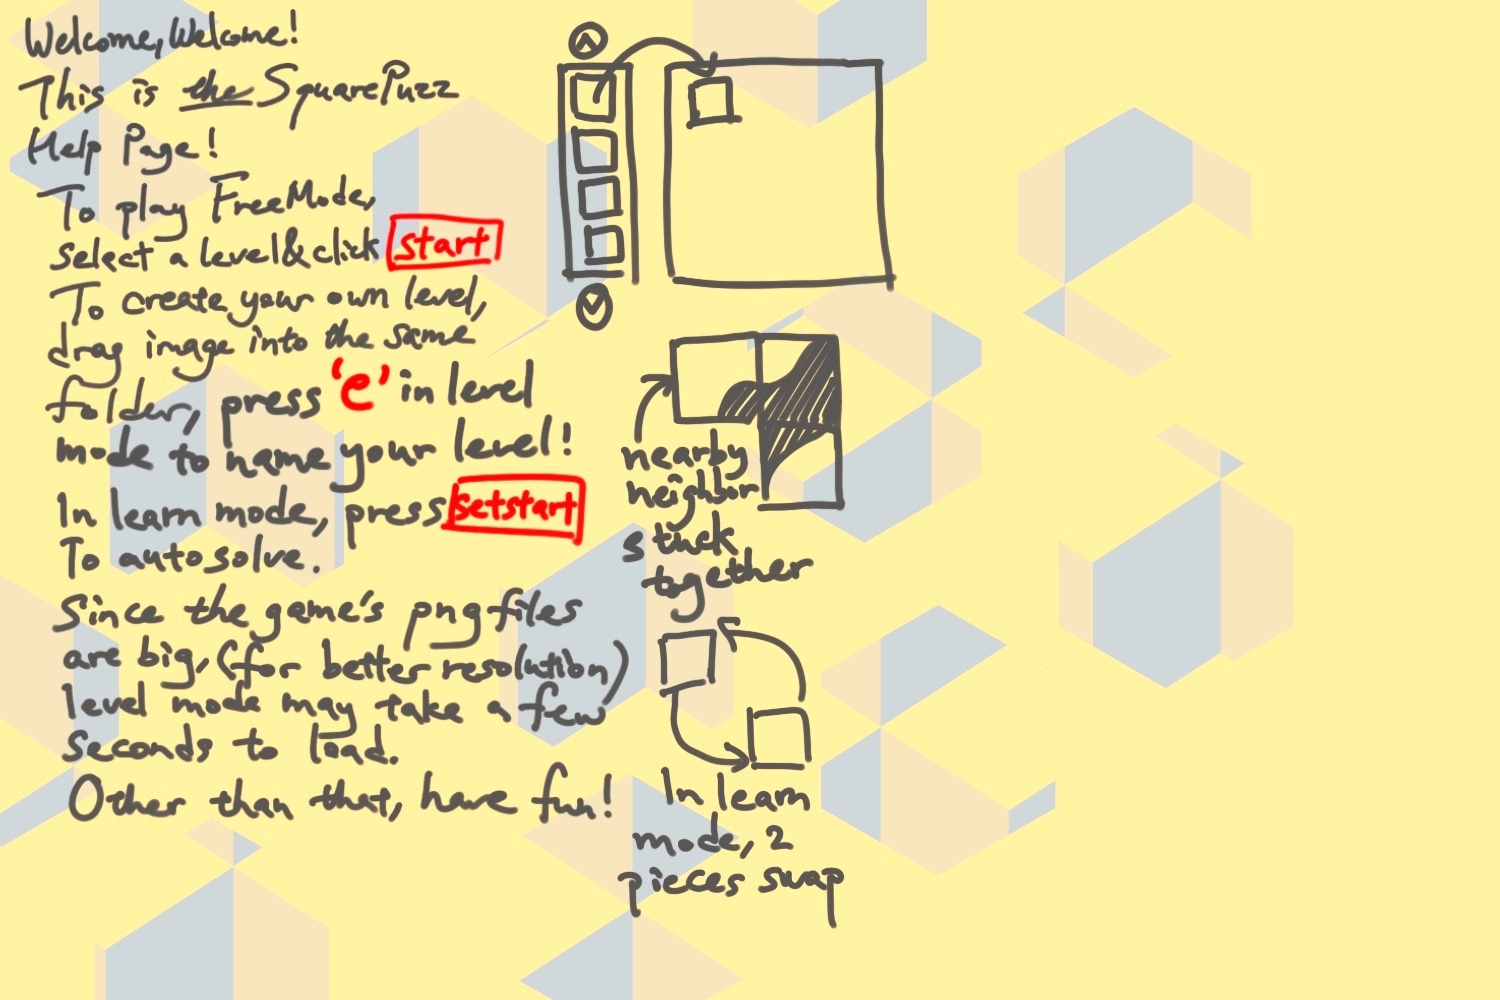 Welcome, Welcome!
This is the SquarePuzz
Help Page!
To play FreeMode,
select a level&click start
To create your own level,
drag image into the same
folder, press 'e' in level
mode to name your level!
In learn mode, press setstart
To autosolve.
Since the game's png files
are big, (for better resolution)
level mode may take a few
seconds to load.
Other than that, have fun!
nearby
neighbor
stuck
together
In learn
mode, 2
pieces swap